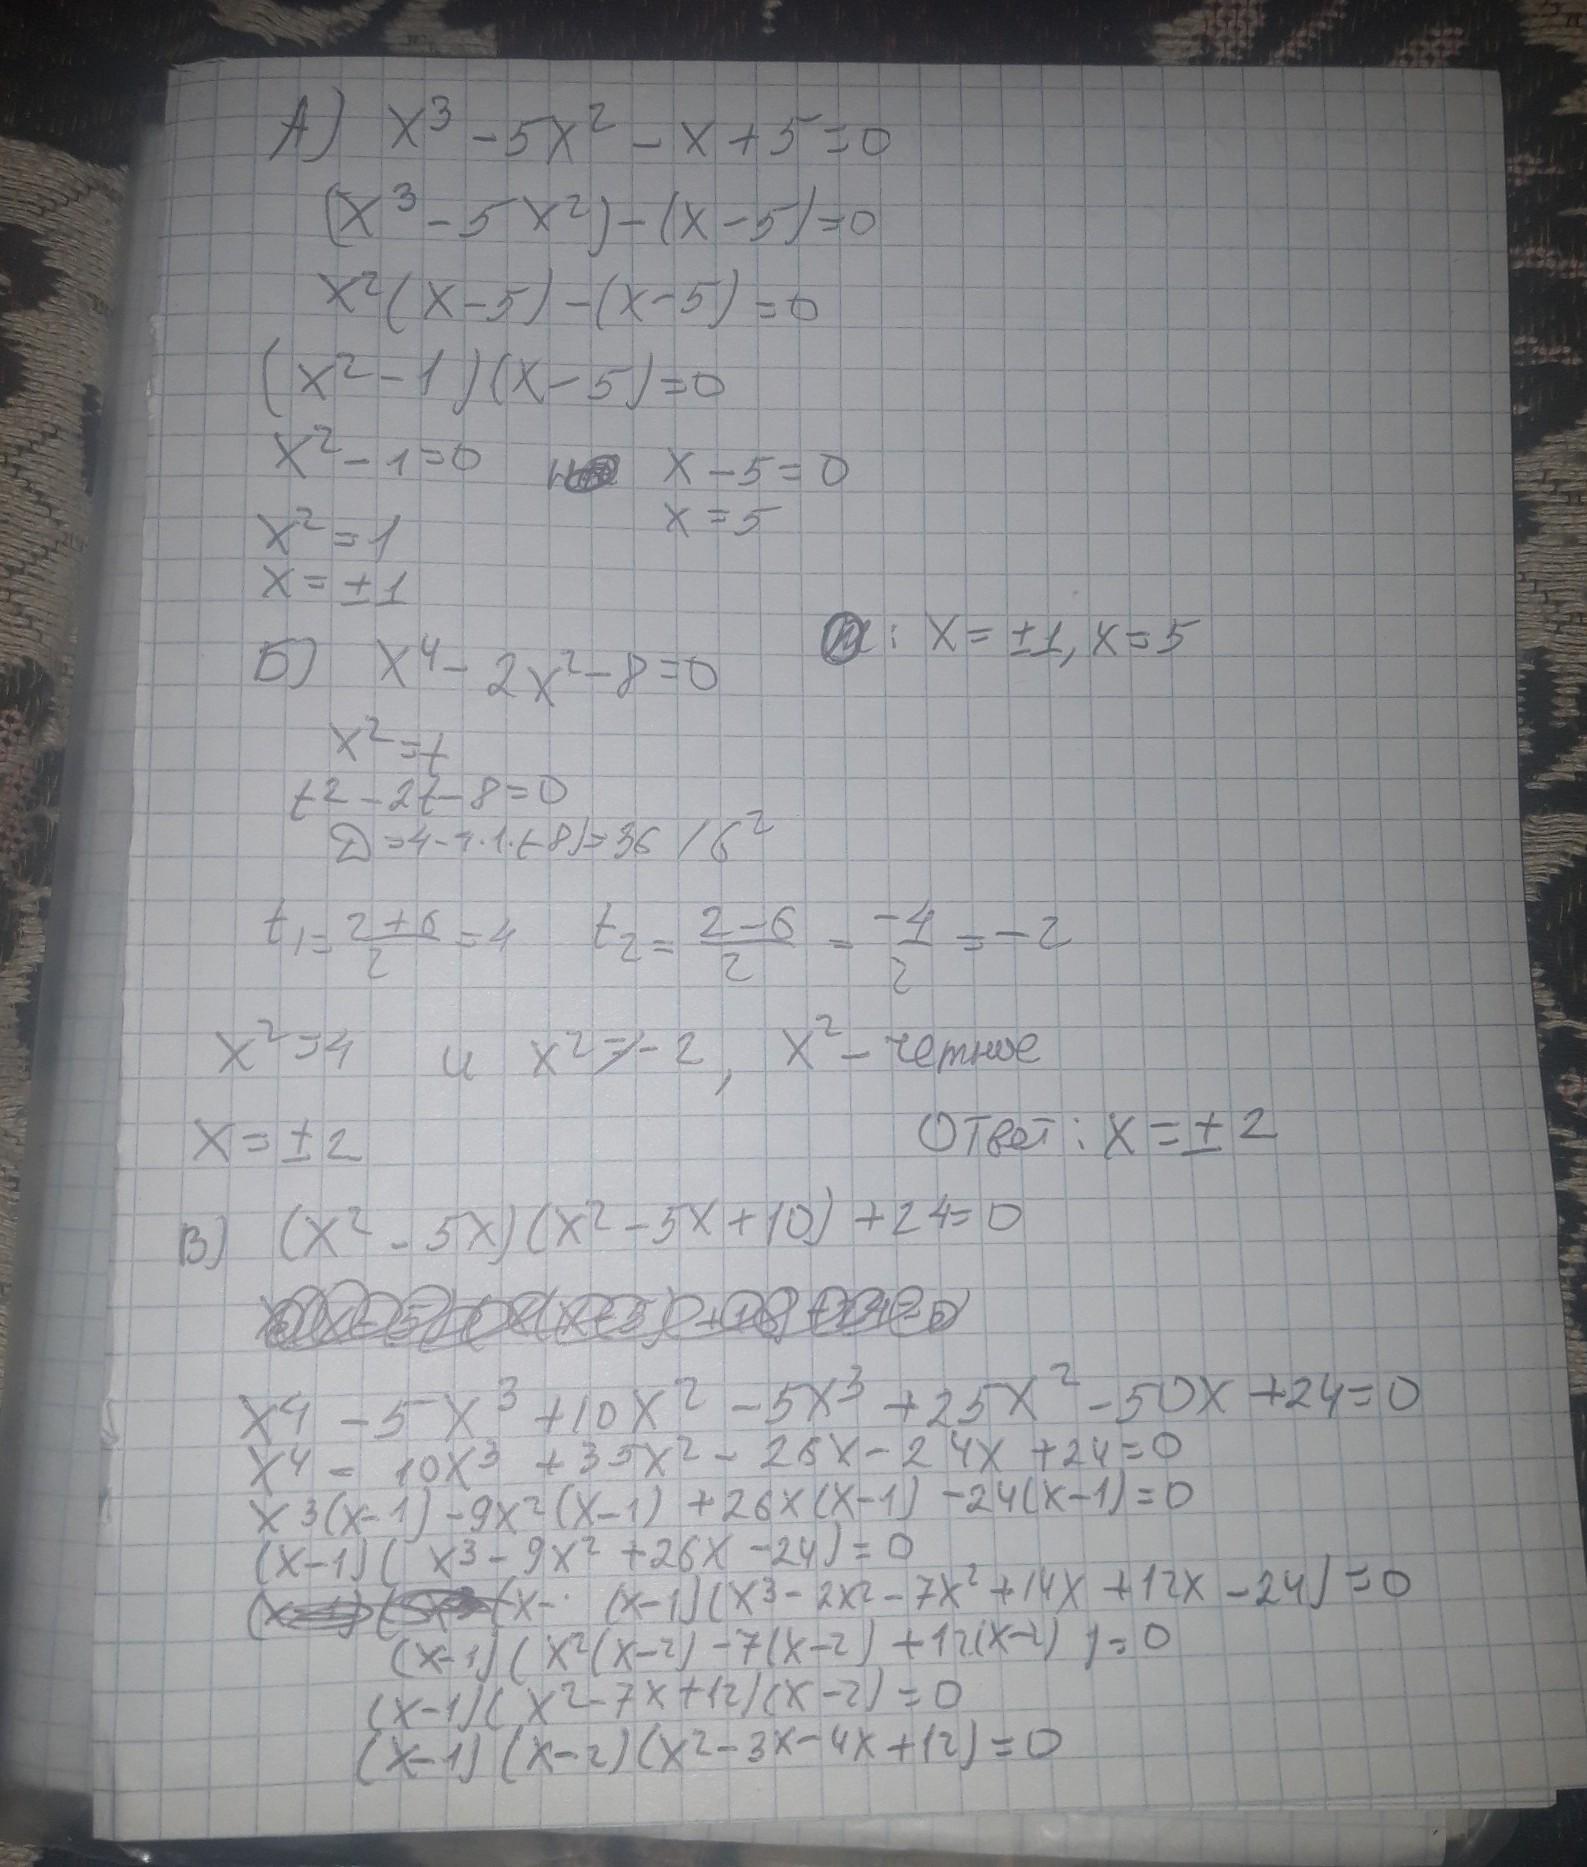 А) x³ - 5x² - x + 5 = 0
(x³ - 5x²) - (x - 5) = 0
x²(x - 5) - (x - 5) = 0
(x² - 1)(x - 5) = 0
x² - 1 = 0 x - 5 = 0
x² = 1 x = 5
x = ±1
: x = ±1, x = 5
Б) x⁴ - 2x² - 8 = 0
x² = t
t² - 2t - 8 = 0
D = 4 - 4·1·(-8) = 36 / 6²
t₁ = (2+6)/2 = 4 t₂ = (2-6)/2 = -4/2 = -2
x² = 4 и x² ≠ -2, x² - четное
x = ±2 Ответ: x = ±2
В) (x² - 5x)(x² - 5x + 10) + 24 = 0
x⁴ - 5x³ + 10x² - 5x³ + 25x² - 50x + 24 = 0
x⁴ - 10x³ + 35x² - 26x - 24x + 24 = 0
x³(x-1) - 9x²(x-1) + 26x(x-1) - 24(x-1) = 0
(x-1)(x³ - 9x² + 26x - 24) = 0
(x- (x-1)(x³ - 2x² - 7x² + 14x + 12x - 24) = 0
(x-1)(x²(x-2) - 7(x-2) + 12(x-2)) = 0
(x-1)(x² - 7x + 12)(x-2) = 0
(x-1)(x-2)(x² - 3x - 4x + 12) = 0